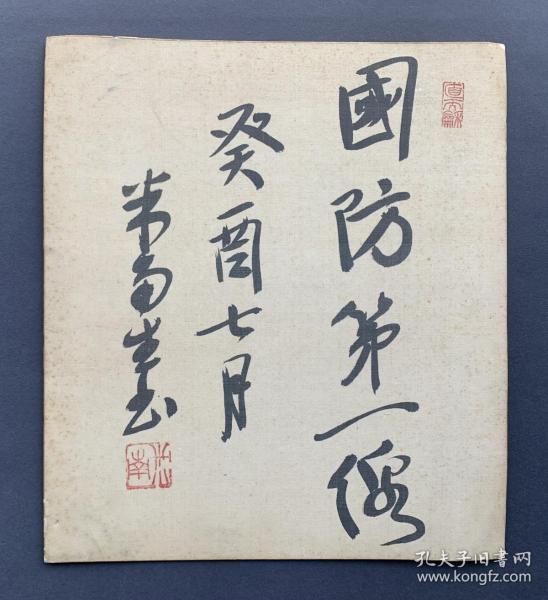 國防第一線
癸酉七月
書
孔夫子旧书网
www.kongfz.com